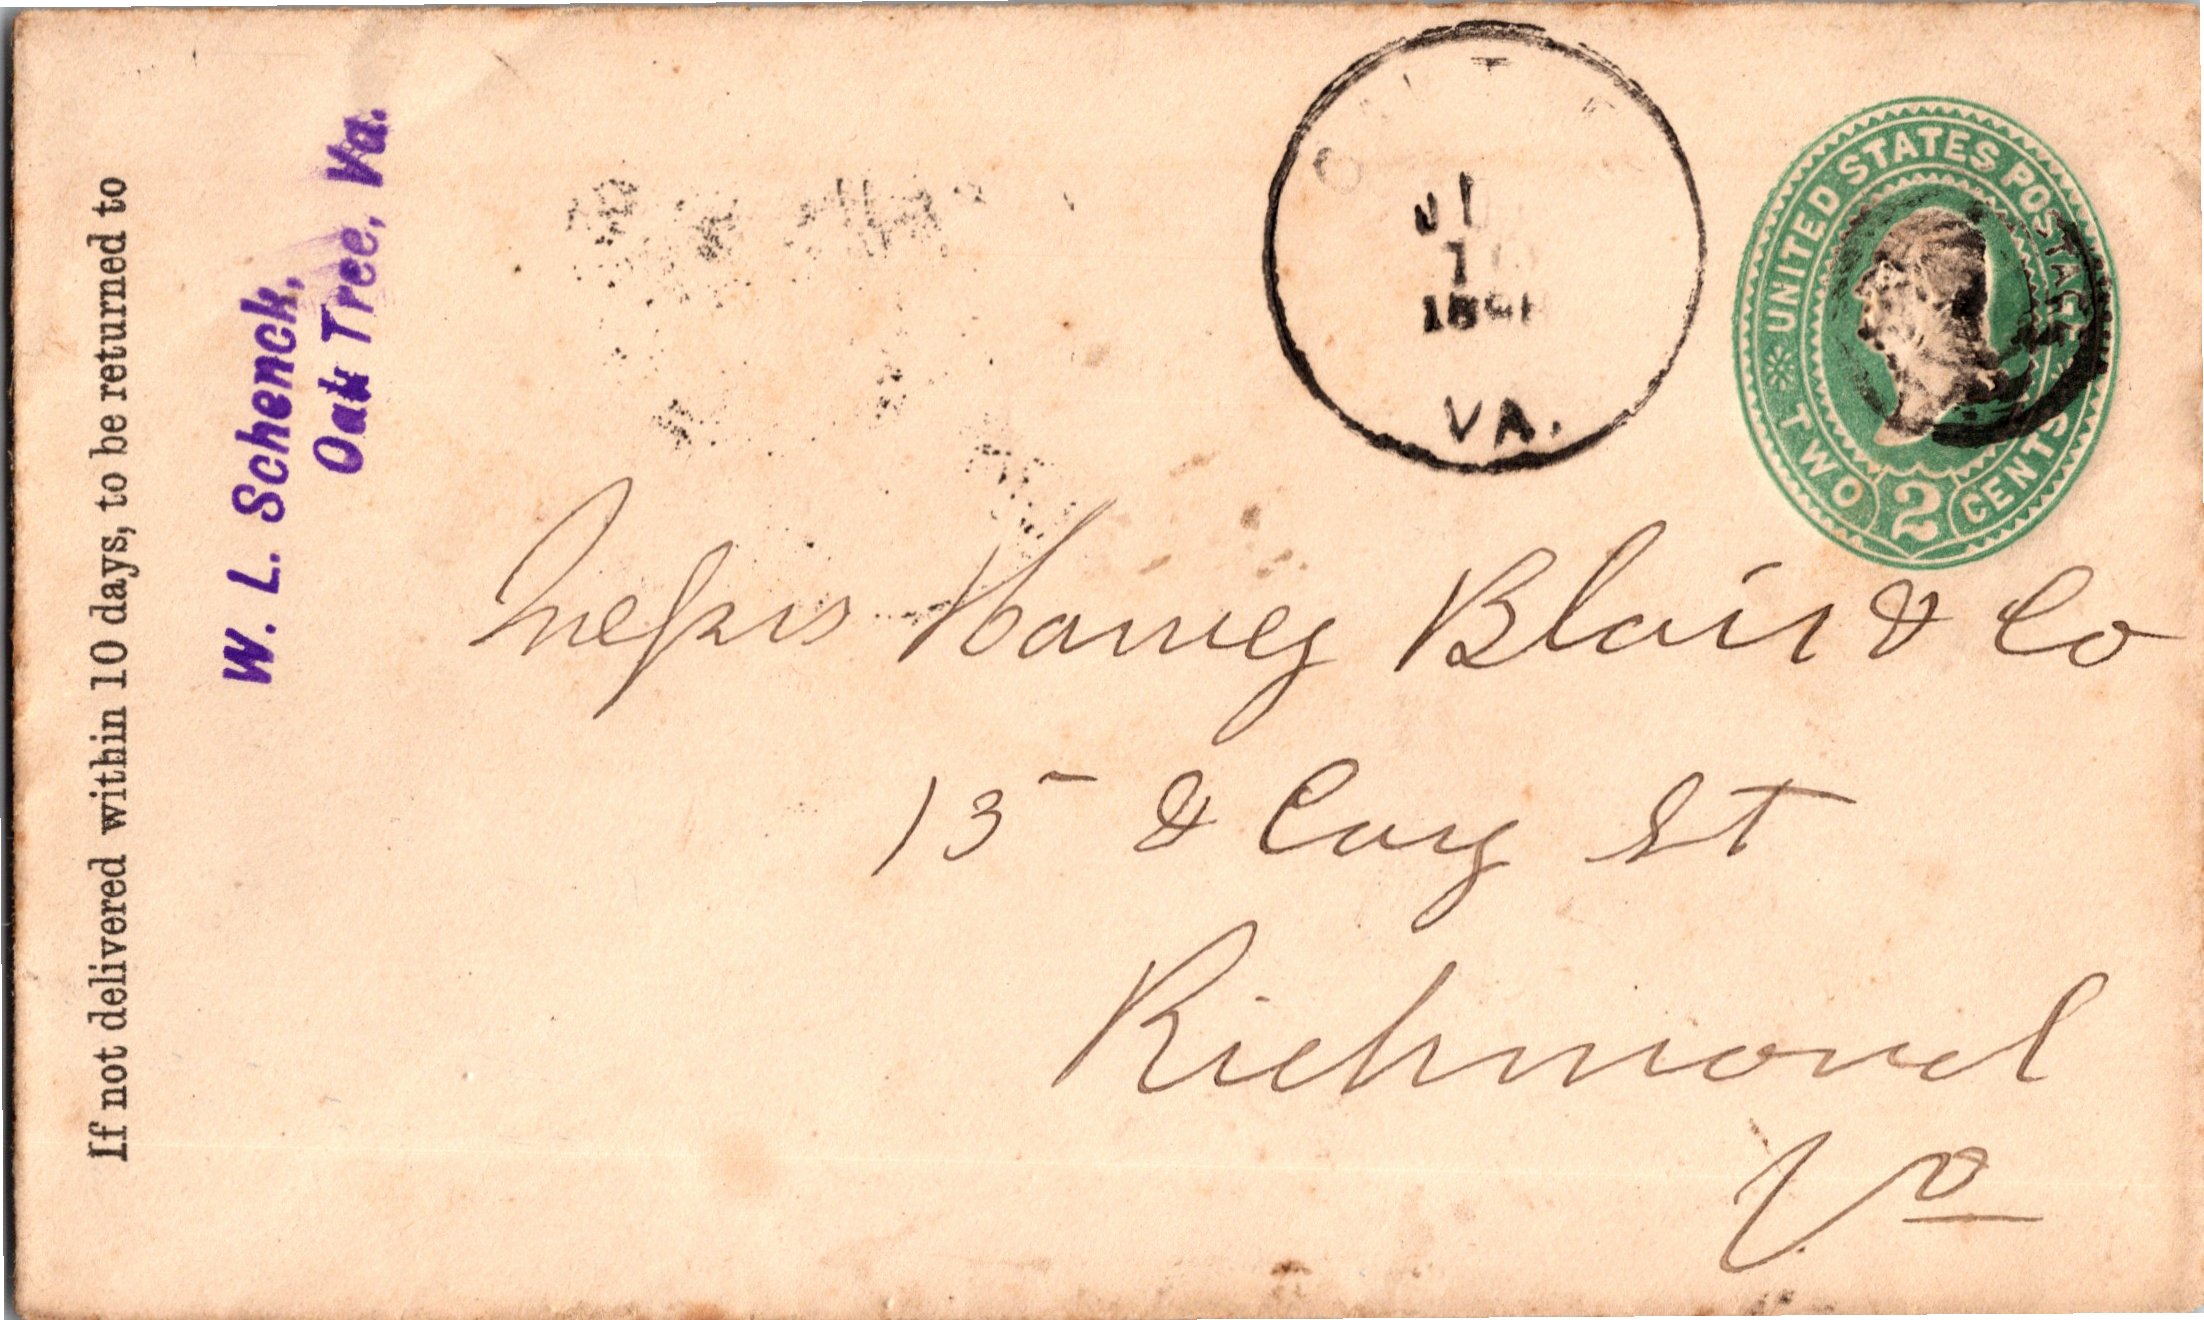 If not delivered within 10 days, to be returned to
W. L. Schenck,
Oak Tree, Va.
VA.
UNITED STATES POSTAGE
TWO 2 CENTS
Messrs Harvey Blair & Co
13 & Cary St
Richmond
Va